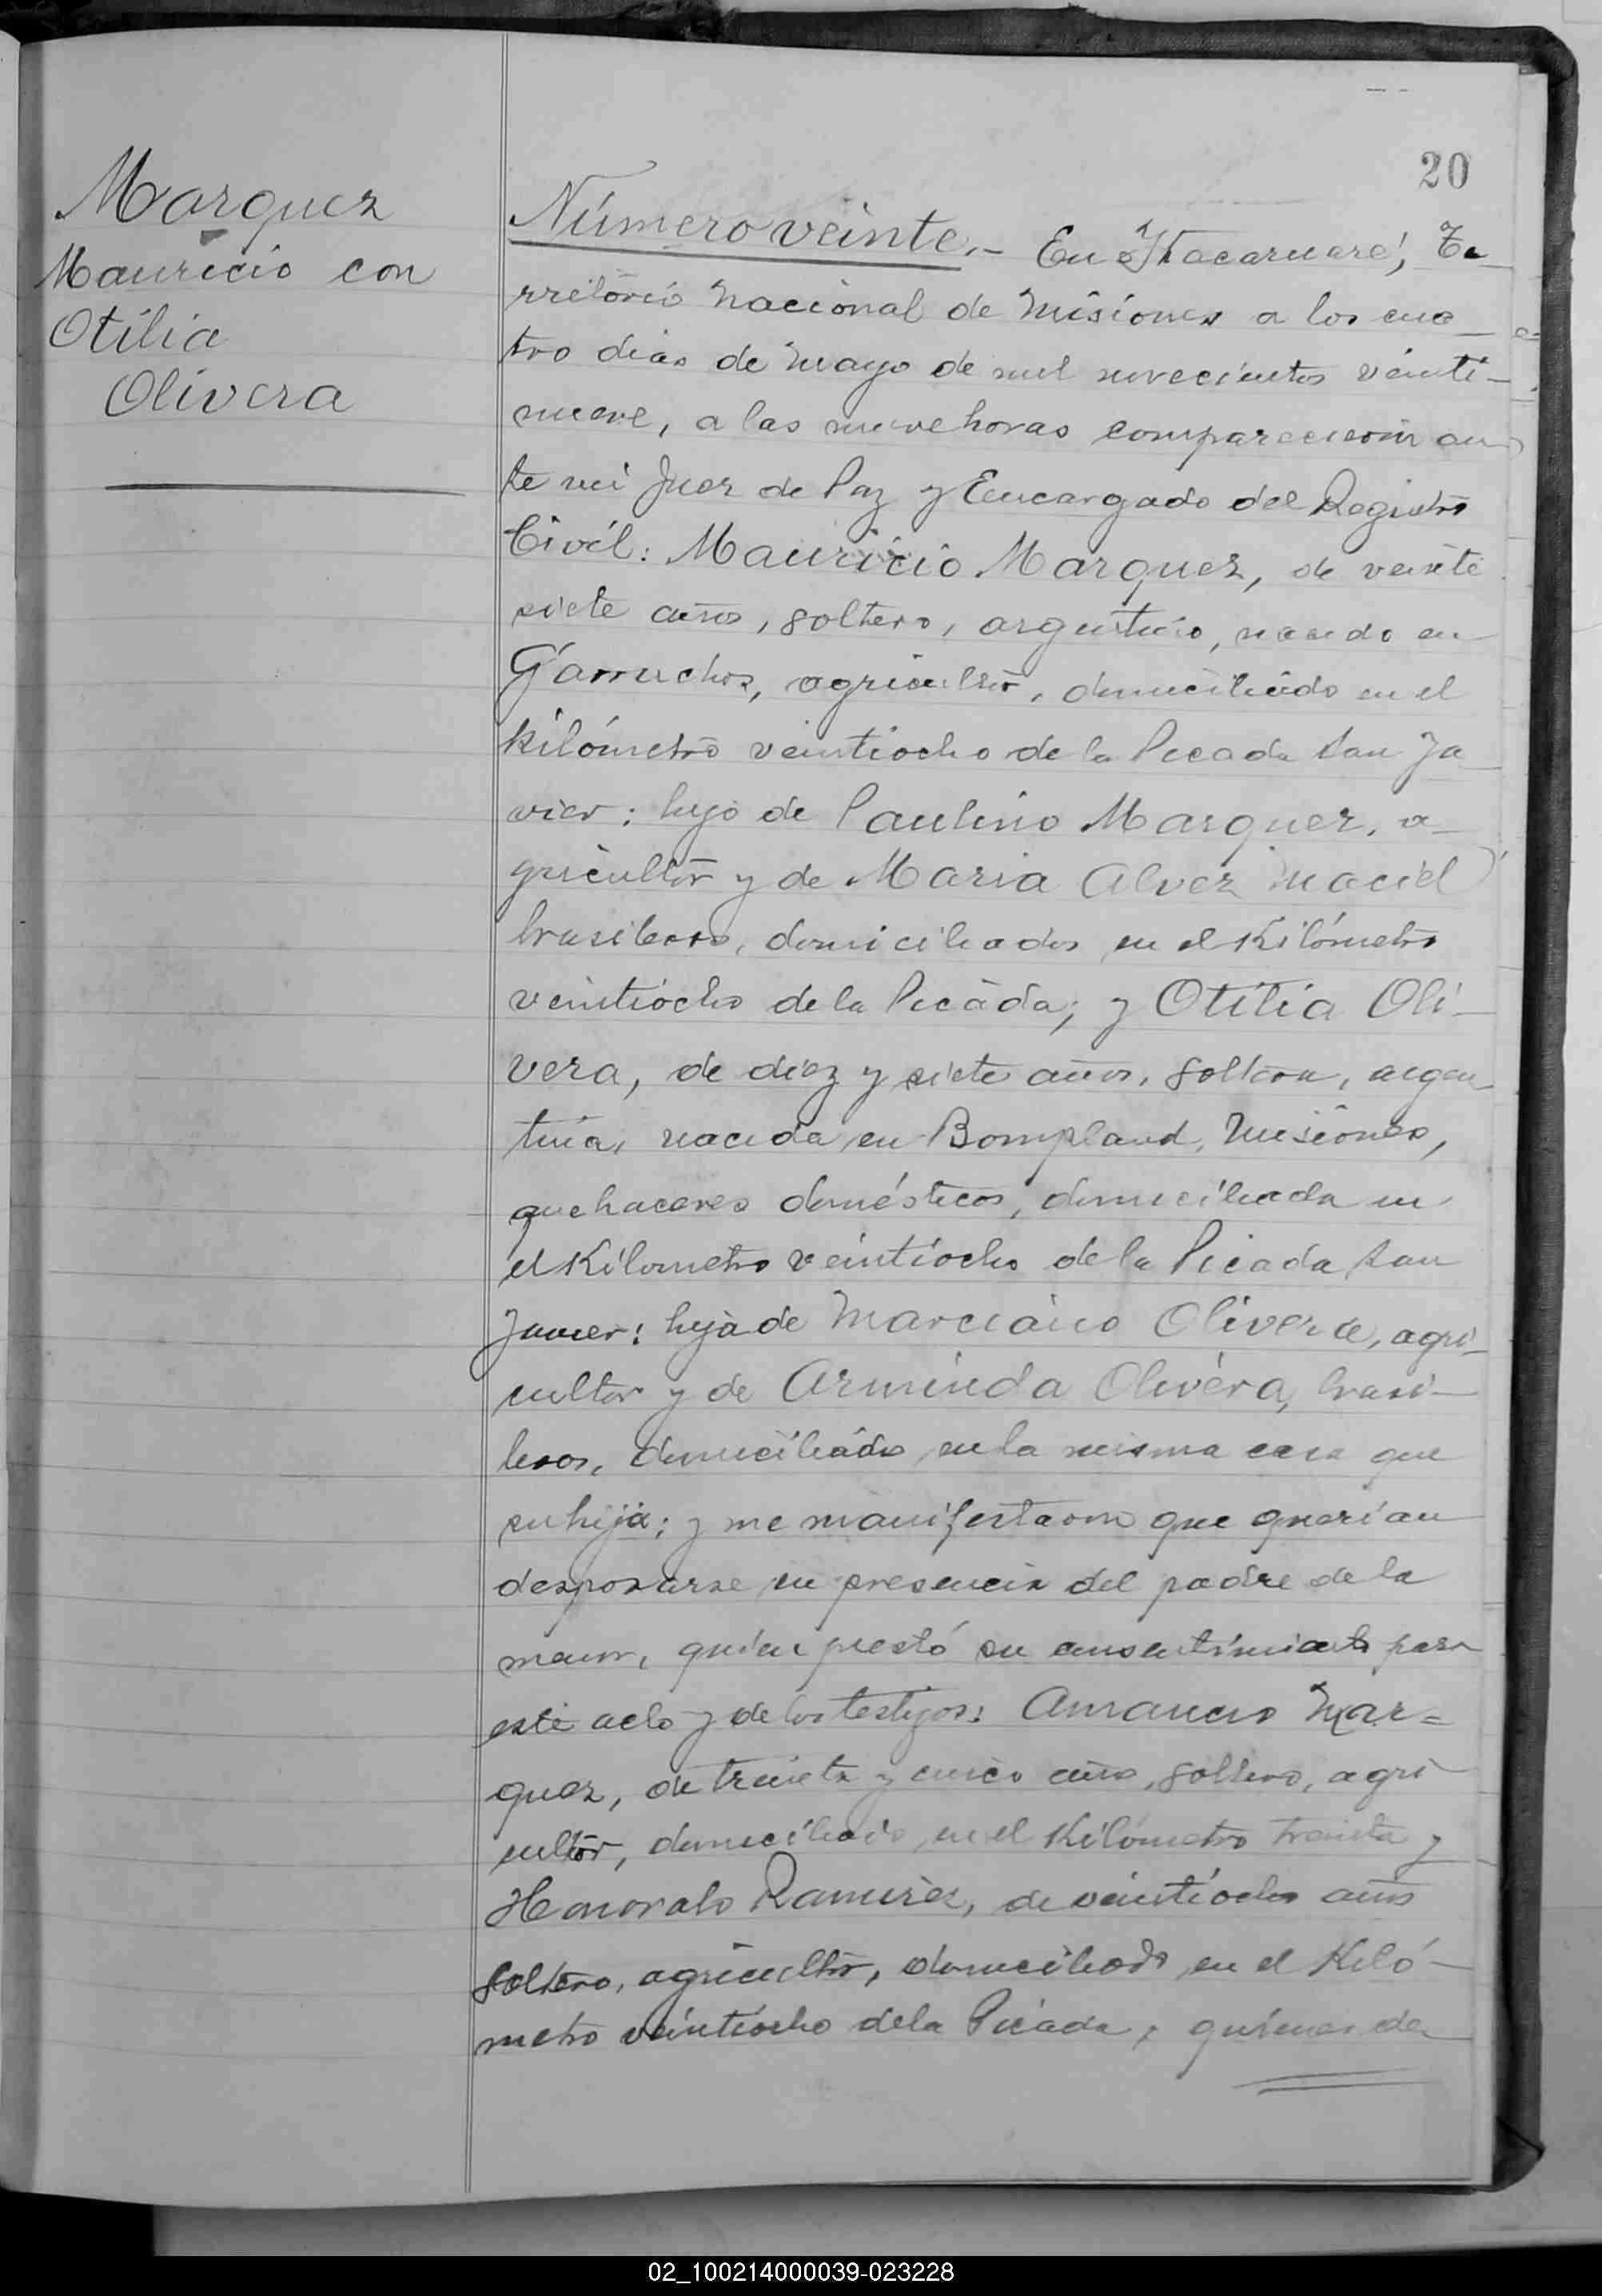 20
Marquez
Mauricio con
Otilia
Olivera
Número veinte.- En Itacaruaré, Te-
rritorio Nacional de Misiones a los cua-
tro dias de Mayo de mil novecientos veinti-
nueve, a las nueve horas comparecieron an-
te mi Juez de Paz y Encargado del Registro
Civil: Mauricio Marquez, de veinte
siete años, soltero, argentino, nacido en
Garruchos, agricultor, domiciliado en el
kilómetro veintiocho de la Picada San Ja-
vier; hijo de Paulino Marquez, a-
gricultor y de Maria Alvez Maciel
brasileros, domiciliados en el Kilómetro
veintiocho de la Picada; y Otilia Oli-
vera, de diez y siete años, soltera, argen-
tina, nacida en Bompland, Misiones,
quehaceres domésticos, domiciliada en
el Kilometro veintiocho de la Picada San
Javier; hija de Marciano Olivera, agri-
cultor y de Arminda Olivera, brasi-
leros, domiciliados en la misma casa que
su hija; y me manifestaron que querian
desposarse en presencia del padre de la
menor, quien prestó su consentimiento para
este acto y de los testigos: Amancio Mar=
quez, de treinta y cinco años, soltero, agri-
cultor, domiciliado en el Kilómetro treinta y
Honorato Ramirez, de veintiocho años
soltero, agricultor, domiciliado en el Kiló-
metro veintiocho de la Picada, quienes de-
02_100214000039-023228